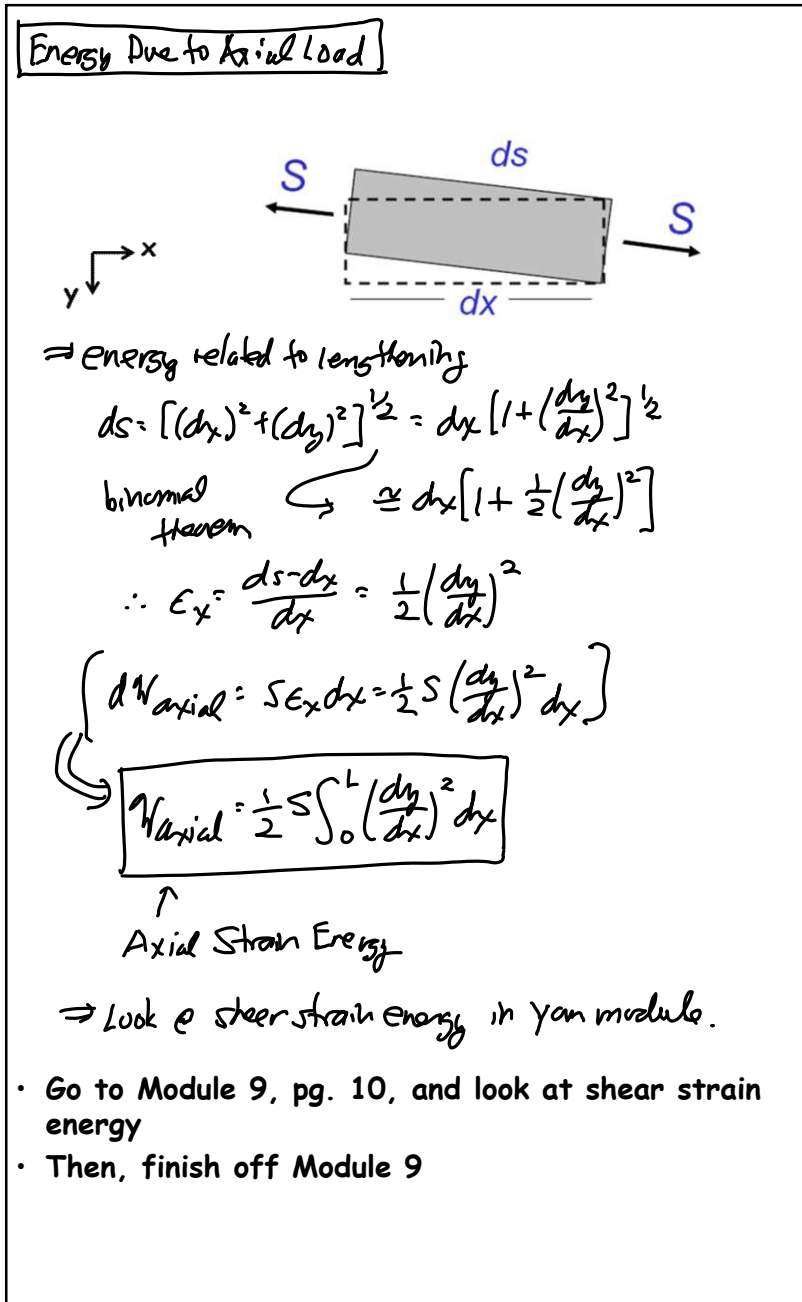 Energy Due to Axial Load
ds
S
S
x
y
dx
⇒ energy related to lengthening
ds = [(dx)² + (dy)²]^½ = dx [1 + (dy/dx)²]^½
binomial theorem ≅ dx[1 + ½(dy/dx)²]
∴ εx = (ds-dx)/dx = ½(dy/dx)²
[dWaxial = Sεxdx = ½ S (dy/dx)² dx]
⇒ Waxial = ½ S ∫₀ᴸ (dy/dx)² dx
↑
Axial Strain Energy
⇒ Look @ sheer strain energy in your module.
• Go to Module 9, pg. 10, and look at shear strain
energy
• Then, finish off Module 9